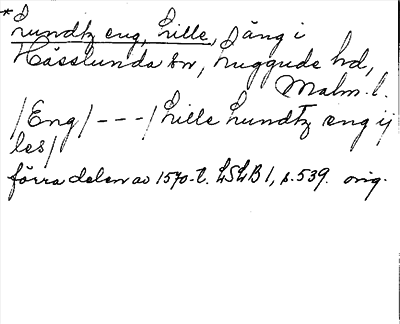 * Lundtz eng, Lille, äng i
Hässlunda sn, Luggude hd,
Malm. l.
/Eng/ - - - / Lille Lundtz eng ij
les/
förra delen av 1570-t. LSLB 1, s. 539. orig.